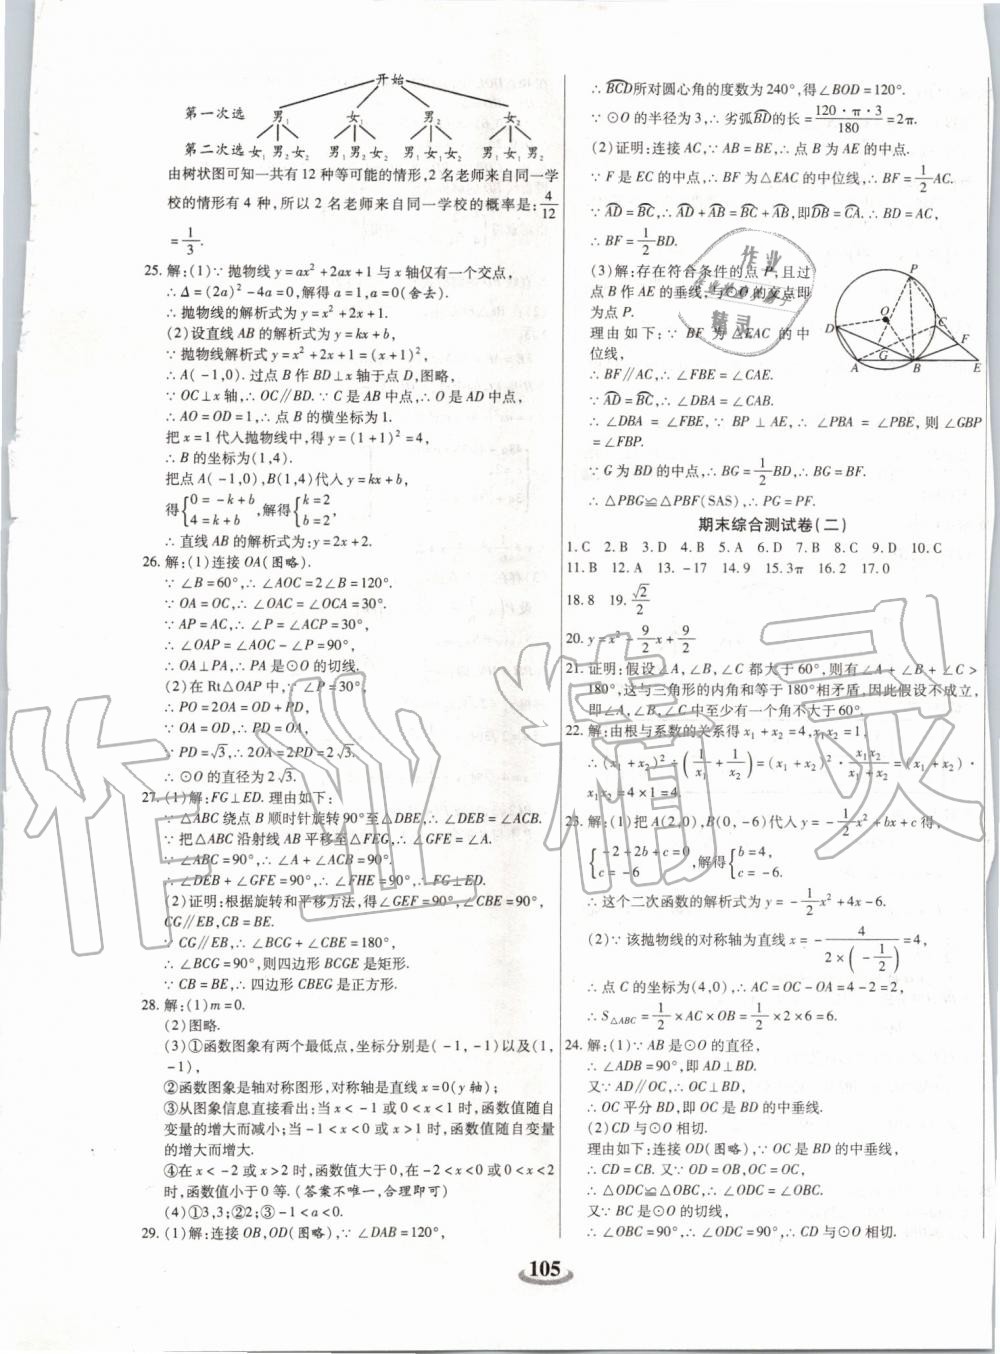 开始
第一次选 男₁ 女₁ 男₂ 女₂
第二次选 女₁ 男₂ 女₂ 男₁ 男₂ 女₂ 男₁ 女₁ 女₂ 男₁ 女₁ 男₂
由树状图可知一共有12种等可能的情形,2名老师来自同一学
校的情形有4种,所以2名老师来自同一学校的概率是:4/12
=1/3.
25.解:(1)∵抛物线y=ax²+2ax+1与x轴仅有一个交点,
∴Δ=(2a)²-4a=0,解得a=1,a=0(舍去).
∴抛物线的解析式为y=x²+2x+1.
(2)设直线AB的解析式为y=kx+b,
∵抛物线解析式y=x²+2x+1=(x+1)²,
∴A(-1,0).过点B作BD⊥x轴于点D,图略,
∵OC⊥x轴,∴OC∥BD.∵C是AB中点,∴O是AD中点,
∴AO=OD=1,∴点B的横坐标为1.
把x=1代入抛物线中,得y=(1+1)²=4,
∴B的坐标为(1,4).
把点A(-1,0),B(1,4)代入y=kx+b,
得{0=-k+b 4=k+b,解得{k=2 b=2.
∴直线AB的解析式为:y=2x+2.
26.解:(1)连接OA(图略).
∵∠B=60°,∴∠AOC=2∠B=120°.
∵OA=OC,∴∠OAC=∠OCA=30°.
∵AP=AC,∴∠P=∠ACP=30°,
∴∠OAP=∠AOC-∠P=90°,
∴OA⊥PA,∴PA是⊙O的切线.
(2)在Rt△OAP中,∵∠P=30°,
∴PO=2OA=OD+PD,
∵OA=OD,∴PD=OA.
∵PD=√3,∴2OA=2PD=2√3.
∴⊙O的直径为2√3.
27.(1)解:FG⊥ED.理由如下:
∵△ABC绕点B顺时针旋转90°至△DBE,∴∠DEB=∠ACB.
∵把△ABC沿射线AB平移至△FEG,∴∠GFE=∠A.
∵∠ABC=90°,∴∠A+∠ACB=90°,
∴∠DEB+∠GFE=90°,∴∠FHE=90°,∴FG⊥ED.
(2)证明:根据旋转和平移方法,得∠GEF=90°,∠CBE=90°,
CG∥EB,CB=BE.
∵CG∥EB,∴∠BCG+∠CBE=180°,
∴∠BCG=90°,则四边形BCGE是矩形.
∵CB=BE,∴四边形CBEG是正方形.
28.解:(1)m=0.
(2)图略.
(3)①函数图象有两个最低点,坐标分别是(-1,-1)以及(1,
-1),
②函数图象是轴对称图形,对称轴是直线x=0(y轴);
③从图象信息直接看出:当x<-1或0<x<1时,函数值随自
变量的增大而减小;当-1<x<0或x>1时,函数值随自变量
的增大而增大.
④在x<-2或x>2时,函数值大于0,在-2<x<0或0<x<2
时,函数值小于0等.(答案不唯一,合理即可)
(4)①3,3;②2;③-1<a<0.
29.(1)解:连接OB,OD(图略),∵∠DAB=120°,
∴BCD所对圆心角的度数为240°,得∠BOD=120°.
∵⊙O的半径为3,∴劣弧BD的长=120·π·3/180=2π.
(2)证明:连接AC,∵AB=BE,∴点B为AE的中点.
∵F是EC的中点,∴BF为△EAC的中位线,∴BF=1/2AC.
∵AD=BC,∴AD+AB=BC+AB,即DB=CA.∴BD=AC,
∴BF=1/2BD.
(3)解:存在符合条件的点P,且过
点B作AE的垂线,与⊙O的交点即
为点P.
理由如下:∵BF为△EAC的中
位线,
∴BF∥AC,∴∠FBE=∠CAE.
∵AD=BC,∴∠DBA=∠CAB.
∴∠DBA=∠FBE,∵BP⊥AE,∴∠PBA=∠PBE,则∠GBP
=∠FBP.
∵G为BD的中点,∴BG=1/2BD,∴BG=BF.
∴△PBG≌△PBF(SAS),∴PG=PF.
P O D C F G A B E
期末综合测试卷(二)
1.C 2.B 3.D 4.B 5.A 6.D 7.B 8.C 9.D 10.C
11.B 12.A 13.-17 14.9 15.3π 16.2 17.0
18.8 19.√2/2
20.y=x²-9/2x+9/2
21.证明:假设∠A,∠B,∠C都大于60°,则有∠A+∠B+∠C>
180°,这与三角形的内角和等于180°相矛盾,因此假设不成立,
即∠A,∠B,∠C中至少有一个角不大于60°.
22.解:由根与系数的关系得x₁+x₂=4,x₁x₂=1.
∴(x₁+x₂)²÷(1/x₁+1/x₂)=(x₁+x₂)²·x₁x₂/(x₁+x₂)=(x₁+x₂)·x₁x₂
=4×1=4.
23.解:(1)把A(2,0),B(0,-6)代入y=-1/2x²+bx+c得,
{-2+2b+c=0 c=-6,解得{b=4, c=-6.
∴这个二次函数的解析式为y=-1/2x²+4x-6.
(2)∵该抛物线的对称轴为直线x=-4/(2×(-1/2))=4,
∴点C的坐标为(4,0),∴AC=OC-OA=4-2=2,
∴S△ABC=1/2×AC×OB=1/2×2×6=6.
24.解:(1)∵AB是⊙O的直径,
∴∠ADB=90°,即AD⊥BD.
又∵AD∥OC,∴OC⊥BD,
∴OC平分BD,即OC是BD的中垂线.
(2)CD与⊙O相切.
理由如下:连接OD(图略),∵OC是BD的中垂线,
∴CD=CB.又∵OD=OB,OC=OC,
∴△ODC≌△OBC,∴∠ODC=∠OBC.
又∵BC是⊙O的切线,
∴∠OBC=90°,∴∠ODC=90°,∴CD与⊙O相切.
105
作业精灵
作业
精灵